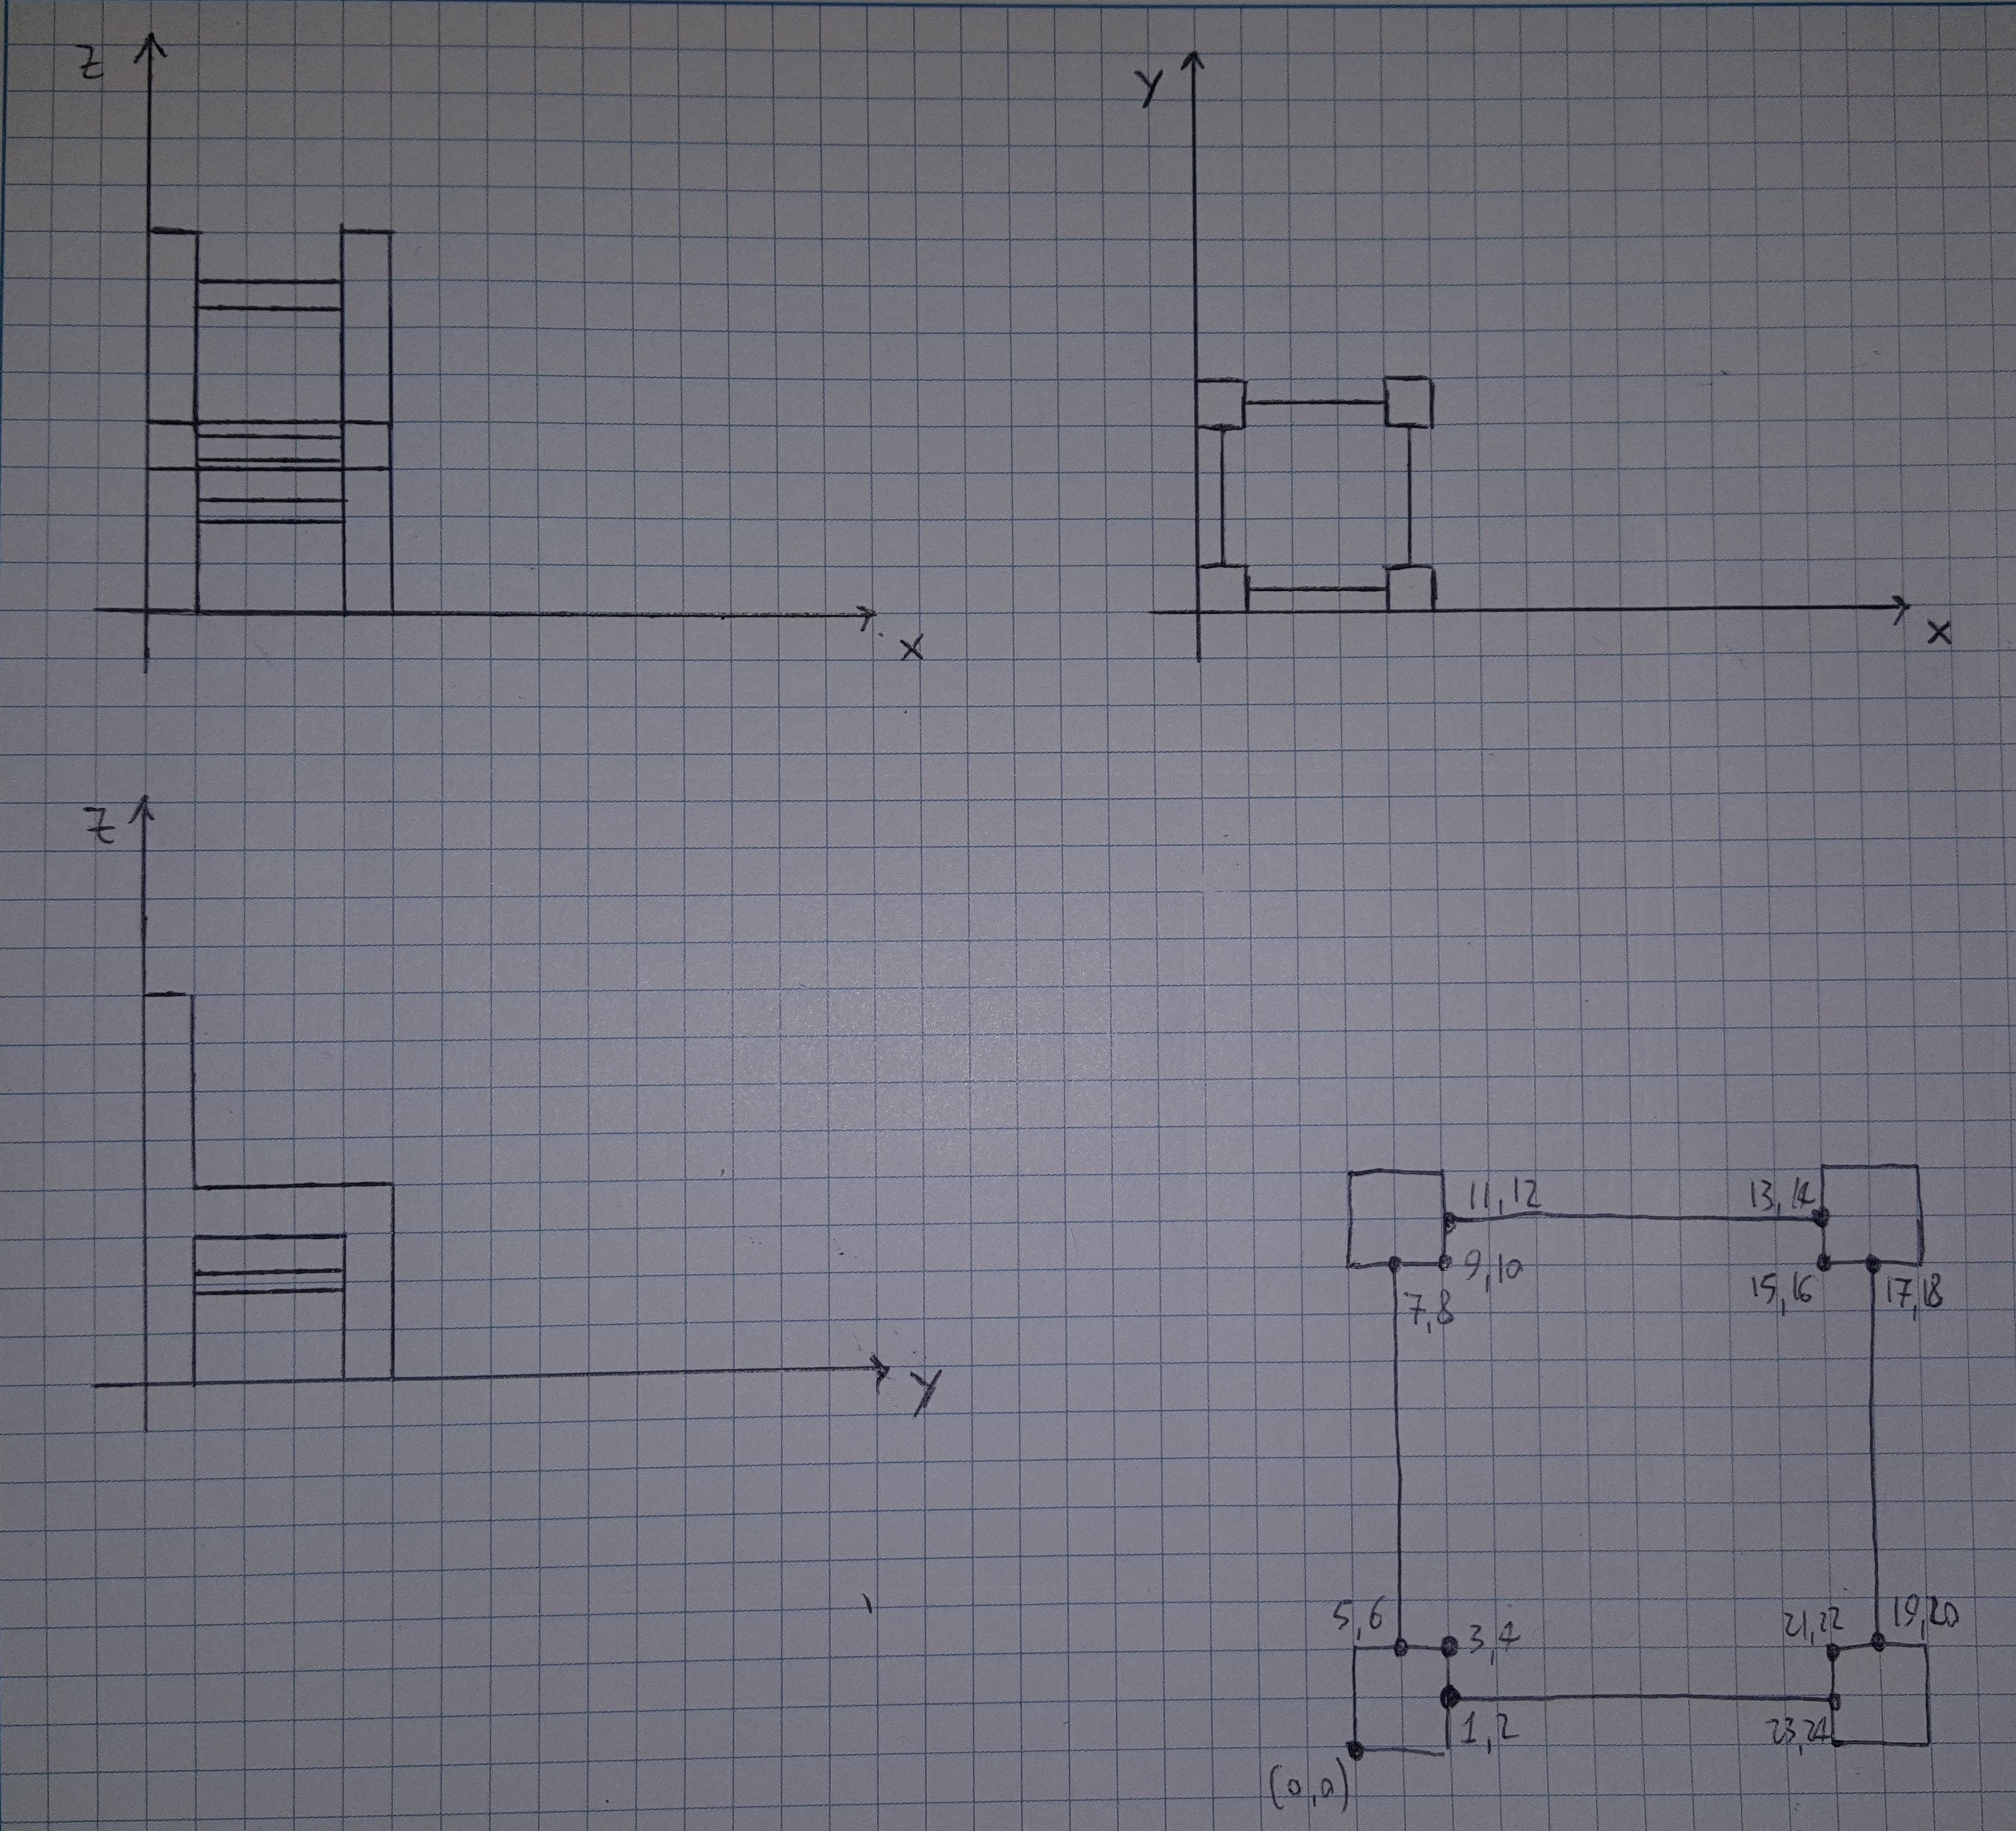 Z
Y
X
X
Z
Y
11,12
13,14
9,10
15,16
17,18
7,8
5,6
3,4
21,22
19,20
1,2
23,24
(0,0)